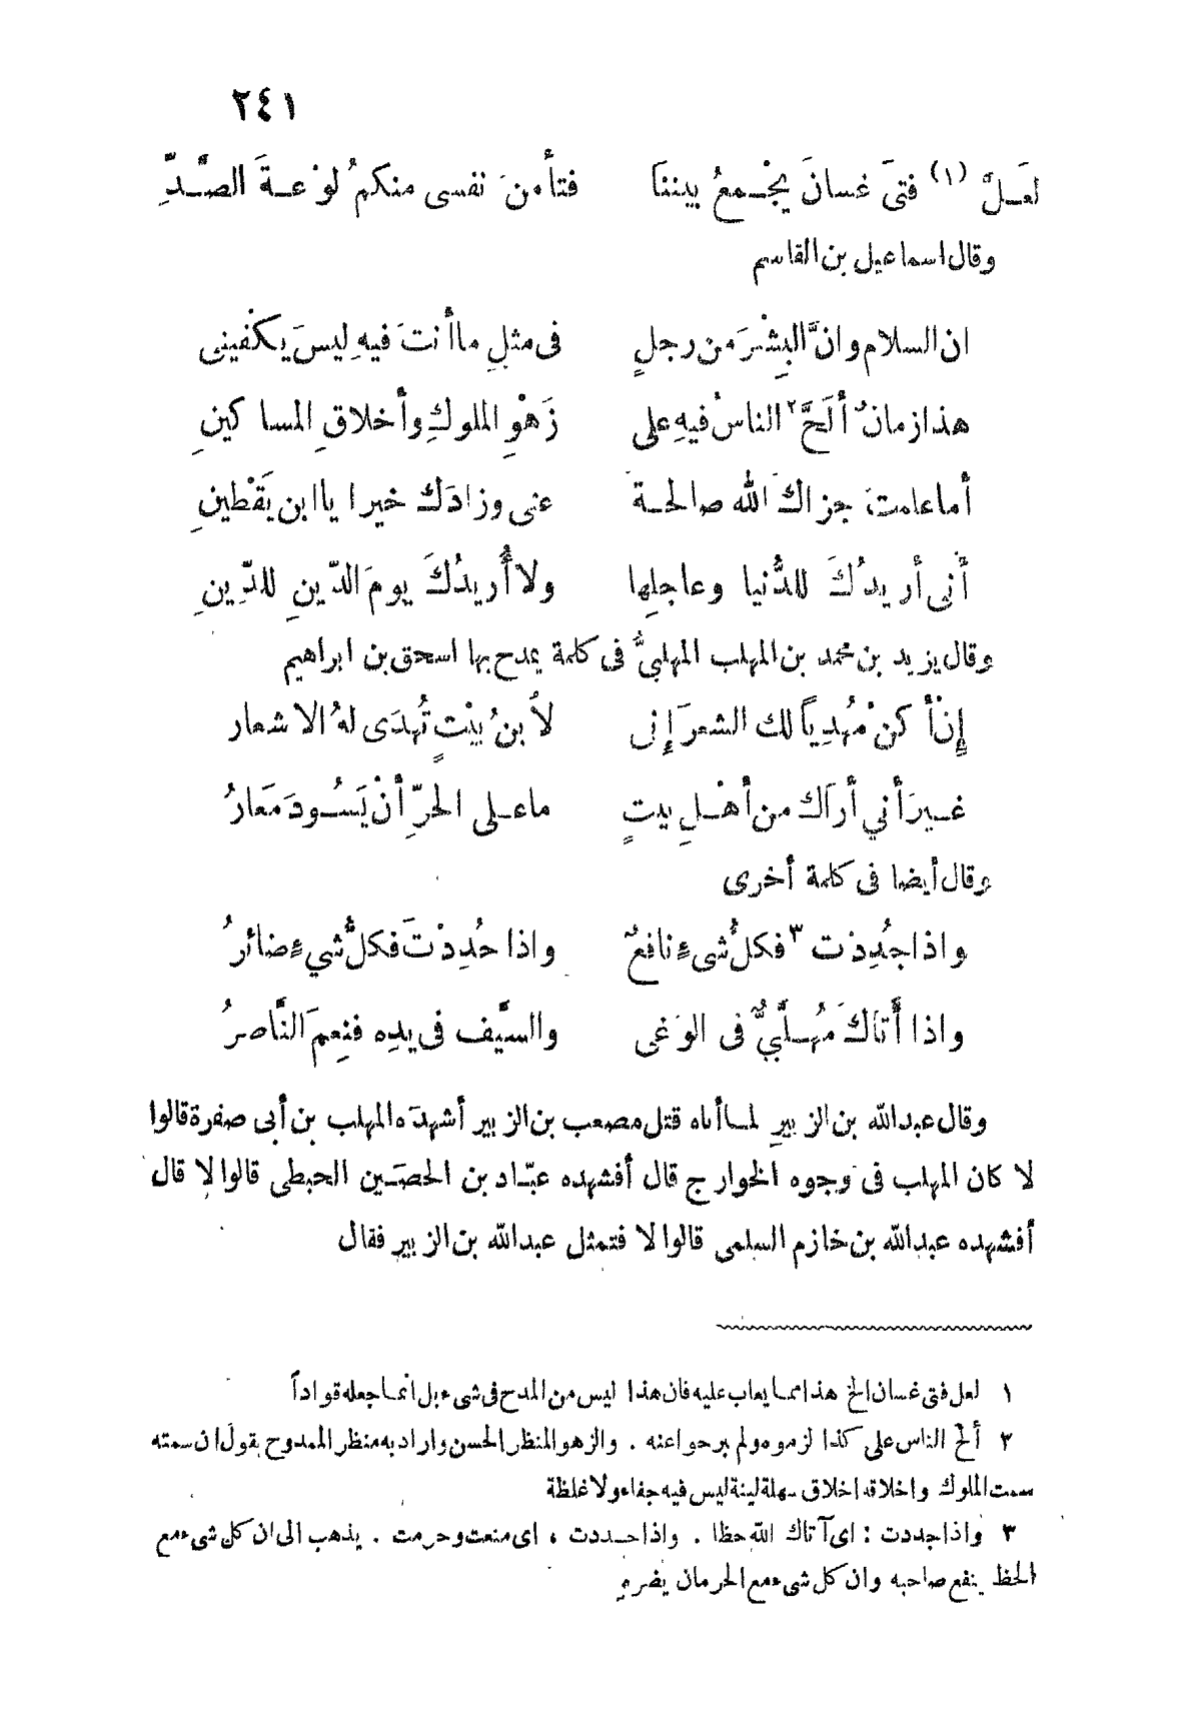 ٢٤١
لعَـلَّ (١) فتىَ غسانَ يجْـمعُ بيننَا فتأمنَ نفسى منكمُ لوْعـةَ الصَّـدِّ
وقال اسماعيل بن القاسم
ان السلام وانَّ البِشْرَ من رجلٍ فى مثلِ ما أنتَ فيهِ ليسَ يكْفينِى
هذا زمانٌ ألَحَّ ٢ الناسُ فيهِ على زَهْوِ الملوكِ وأخلاقِ المساكينِ
أما علمتَ جزاكَ الله صالحـةً عنى وزادَكَ خيرا يا ابن يَقْطينِ
أنى أريدُكَ للدُّنيا وعاجلِها ولا أُريدُكَ يومَ الدّينِ للدِّينِ
وقال يزيد بن محمد بن المهلب المهلبىُّ فى كلمة يمدح بها اسحق بن ابراهيم
إنْ أكنْ مُهْدِياً لك الشعرَ إنى لأَبنُ بيْتٍ تُهدَى لهُ الاشعار
غـيرَ أني أراكَ من أهْـلِ بيتٍ ما عـلى الحرِّ أنْ يَسُـودَ مَعَارُ
وقال أيضا فى كلمة أخرى
واذا جُدِدْت ٣ فكلُّ شىءٍ نافعٌ واذا حُدِدْتَ فكلُّ شيءٍ ضائرُ
واذا أَتاكَ مُهلَّبيٌّ فى الوَغى والسَّيف فى يدِه فنِعمَ النَّاصرُ
وقال عبد الله بن الزبيرِ لمـا أتاه قتل مصعب بن الزبير أشهدَه المهلب بن أبى صفرة قالوا
لا كان المهلب فى وجوه الخوارج قال أفشهده عبّـاد بن الحصَـين الحبطى قالوا لا قال
أفشهده عبد الله بن خازم السلمى قالوا لا فتمثل عبد الله بن الزبير فقال
١ لعل فتى غسان الخ هذا ممـا يعاب عليه فان هذا ليس من المدح فى شىء بل انمـا جعله قواداً
٢ ألحّ الناس على كذا لزموه ولم يبرحوا عنه . والزهو المنظر الحسن واراد به منظر الممدوح يقول ان سمته
سمت الملوك واخلاقه اخلاق سهلة لينة ليس فيه جفاء ولا غلظة
٣ واذا جددت : اى آتاك اللّه حظا . واذا حـددت ، اى منعت وحرمت . يذهب الى ان كل شىء مع
الحظ ينفع صاحبه وان كل شىء مع الحرمان يضره